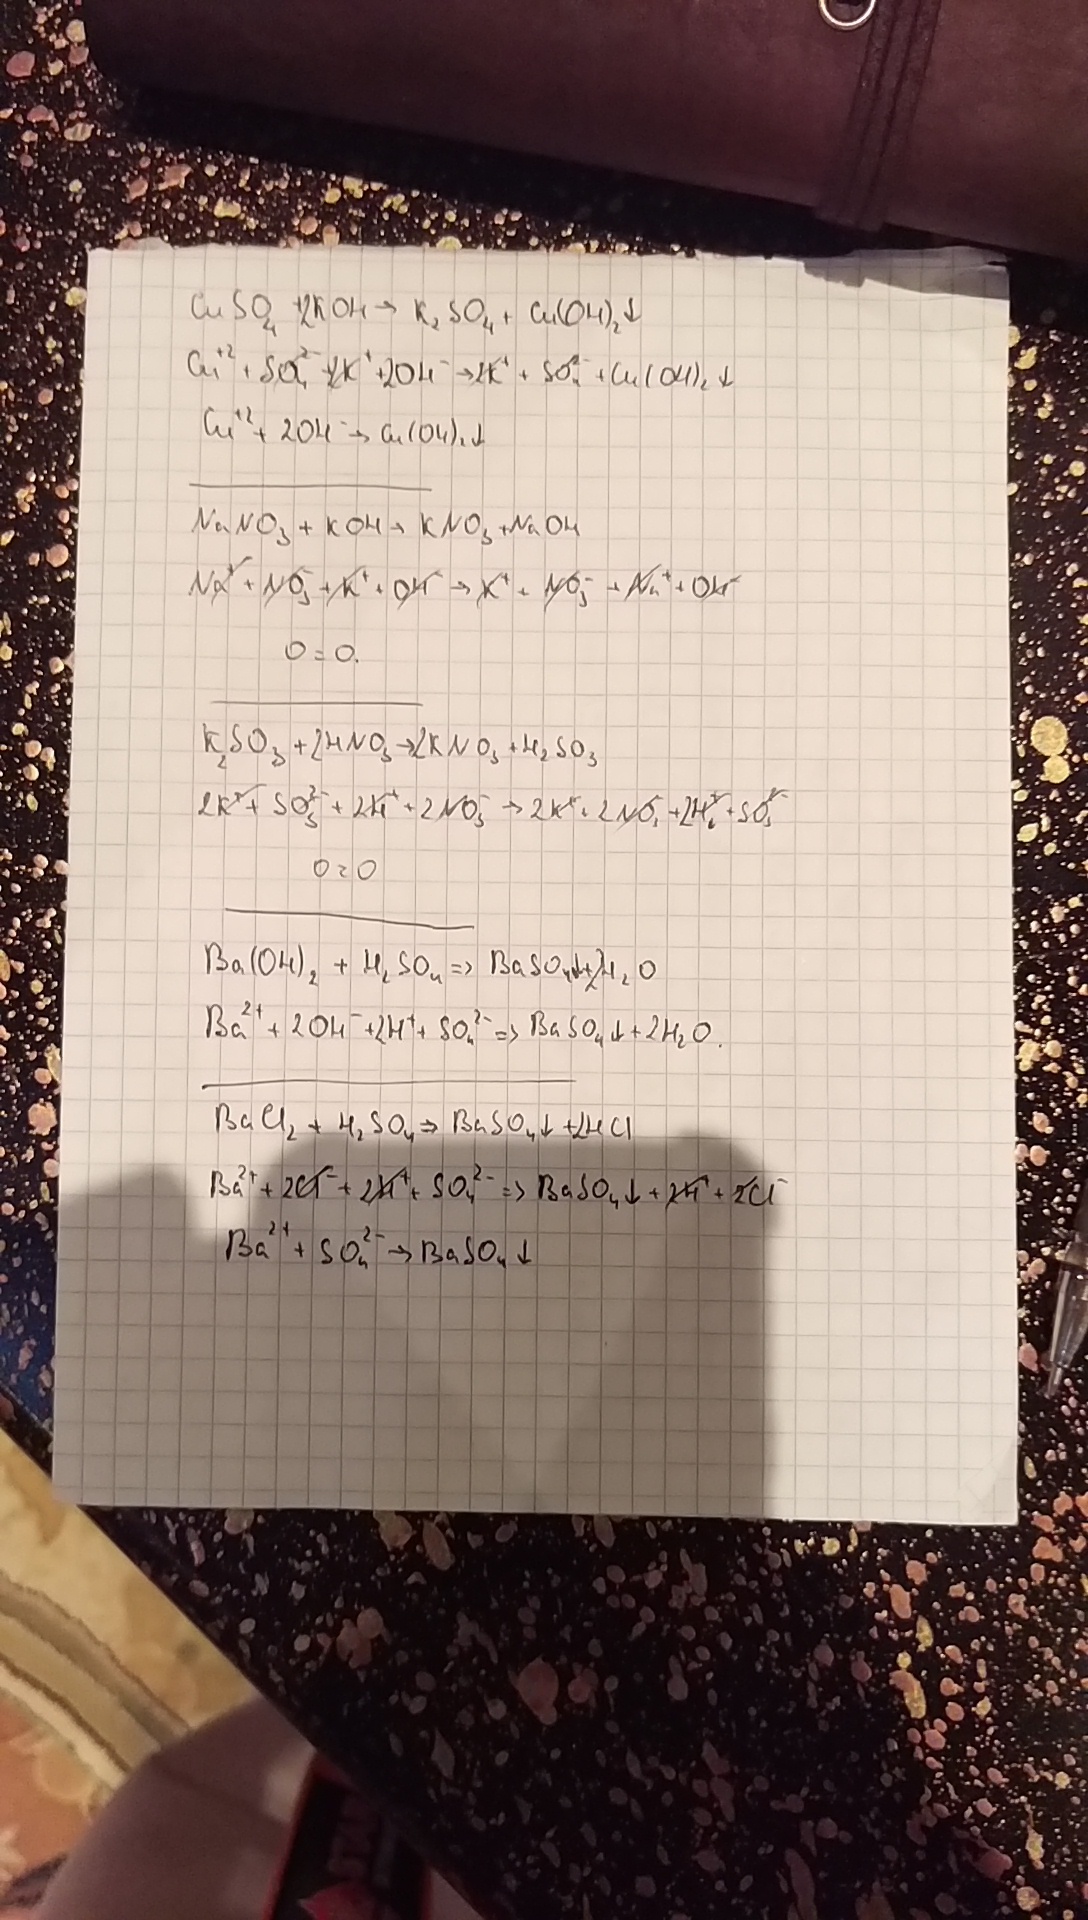 CuSO₄ + 2KOH → K₂SO₄ + Cu(OH)₂↓
Cu⁺² + SO₄²⁻ + 2K⁺ + 2OH⁻ → 2K⁺ + SO₄²⁻ + Cu(OH)₂↓
Cu⁺² + 2OH⁻ → Cu(OH)₂↓
NaNO₃ + KOH → KNO₃ + NaOH
Na⁺ + NO₃⁻ + K⁺ + OH⁻ → K⁺ + NO₃⁻ + Na⁺ + OH⁻
0 = 0.
K₂SO₃ + 2HNO₃ → 2KNO₃ + H₂SO₃
2K⁺ + SO₃²⁻ + 2H⁺ + 2NO₃⁻ → 2K⁺ + 2NO₃⁻ + 2H₂⁺ + SO₃²⁻
0 = 0
Ba(OH)₂ + H₂SO₄ => BaSO₄↓ + 2H₂O
Ba²⁺ + 2OH⁻ + 2H⁺ + SO₄²⁻ => BaSO₄↓ + 2H₂O.
BaCl₂ + H₂SO₄ => BaSO₄↓ + 2HCl
Ba²⁺ + 2Cl⁻ + 2H⁺ + SO₄²⁻ => BaSO₄↓ + 2H⁺ + 2Cl⁻
Ba²⁺ + SO₄²⁻ → BaSO₄↓